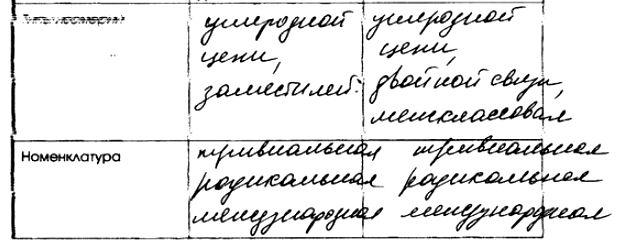 Типы изомерии углеродной углеродной
цепи, цепи,
заместилей. двойной связи,
межклассовая
Номенклатура тривиальная тривиальная
радикальная радикальная
международная международная